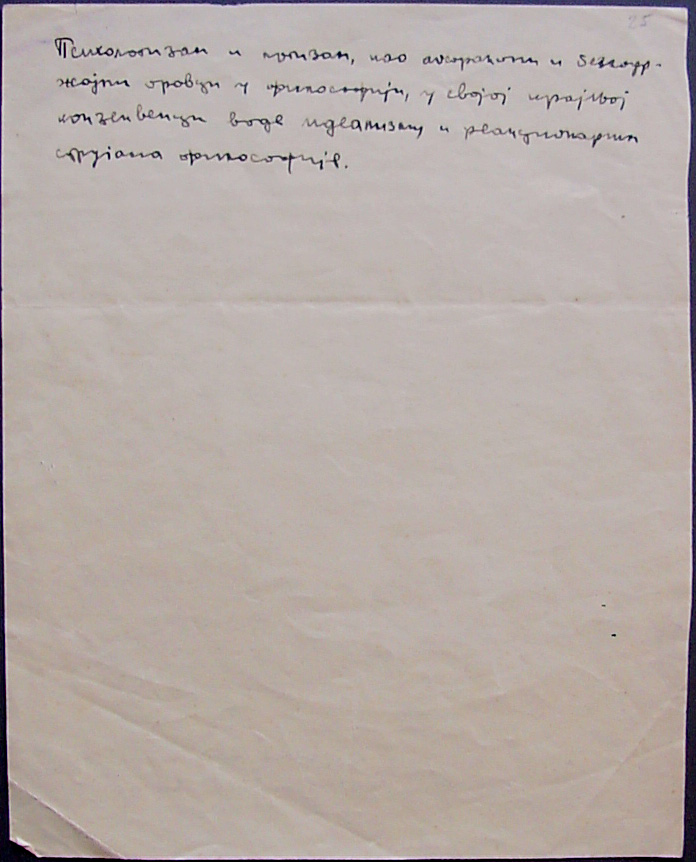 25
Психологизам и логизам, као апстрактни и безсадр-
жајни правци у филозофији, у својој крајњој
конзеквенци воде идеализму и реакционарним
струјама филозофије.